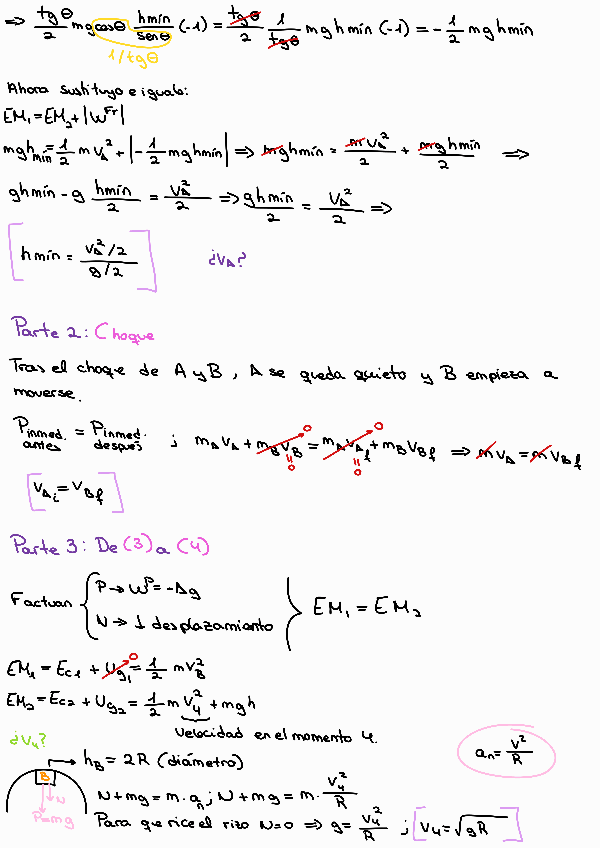 ⇒ tgθ/2 mg cosθ hmín/senθ (-1) = tgθ/2 1/tgθ mg hmín (-1) = -1/2 mg hmín
1/tgθ
Ahora sustituyo e igualo:
EM₁ = EM₂ + |W^Fr|
mghmín = 1/2 m vA² + |-1/2 mg hmín| ⇒ mghmín = mvA²/2 + mghmín/2 ⇒
ghmín - g hmín/2 = vA²/2 ⇒ ghmín/2 = vA²/2 ⇒
[hmín = vA²/2 / g/2] ¿vA?
Parte 2: Choque
Tras el choque de A y B, A se queda quieto y B empieza a
moverse.
Pinmed. antes = Pinmed. después ; mAvA + mBvB = mAvAf + mBvBf ⇒ mvA = mvBf
0 0
0 0
[vAi = vBf]
Parte 3: De (3) a (4)
Factuan { P → W^P = -Δg
N → ⊥ desplazamiento } EM₁ = EM₂
EM₁ = Ec1 + Ug1 = 1/2 mvB²
0
EM₂ = Ec2 + Ug2 = 1/2 m v4² + mgh
Velocidad en el momento 4.
¿v4?
aₙ = v²/R
B → hB = 2R (diámetro)
N + mg = m·aₙ ; N + mg = m· v4²/R
N
P=mg
Para que rice el rizo N=0 ⇒ g = v4²/R ; [v4 = √gR]